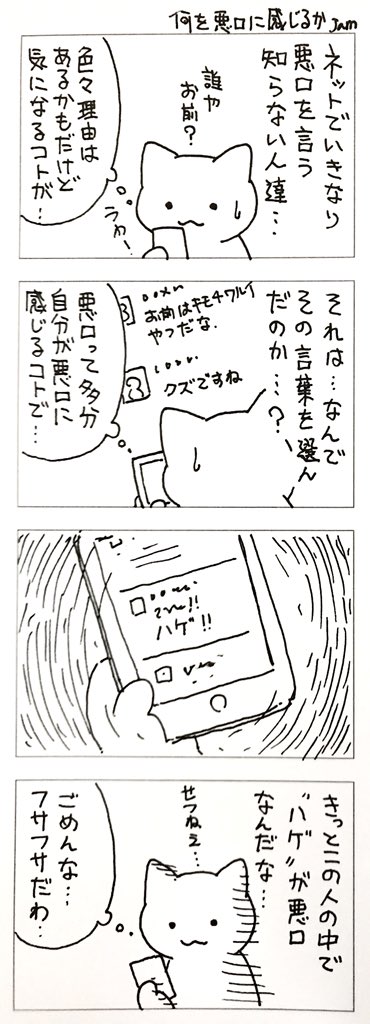 何を悪口に感じるか Jam
ネットでいきなり
悪口を言う
知らないん達…
誰や
お前?
うわー
色々理由は
あるかもだけど
気になるコトが…
それは…なんで
その言葉を選ん
だのか…?
お前はキモチワルイ
やつだな.
クズですね
悪口って多分
自分が悪口に
感じるコトで…
ハゲ!!
きっとこの人の中で
"ハゲ"が悪口
なんだな…
せつねえ…
ごめんな…
フサフサだわ…